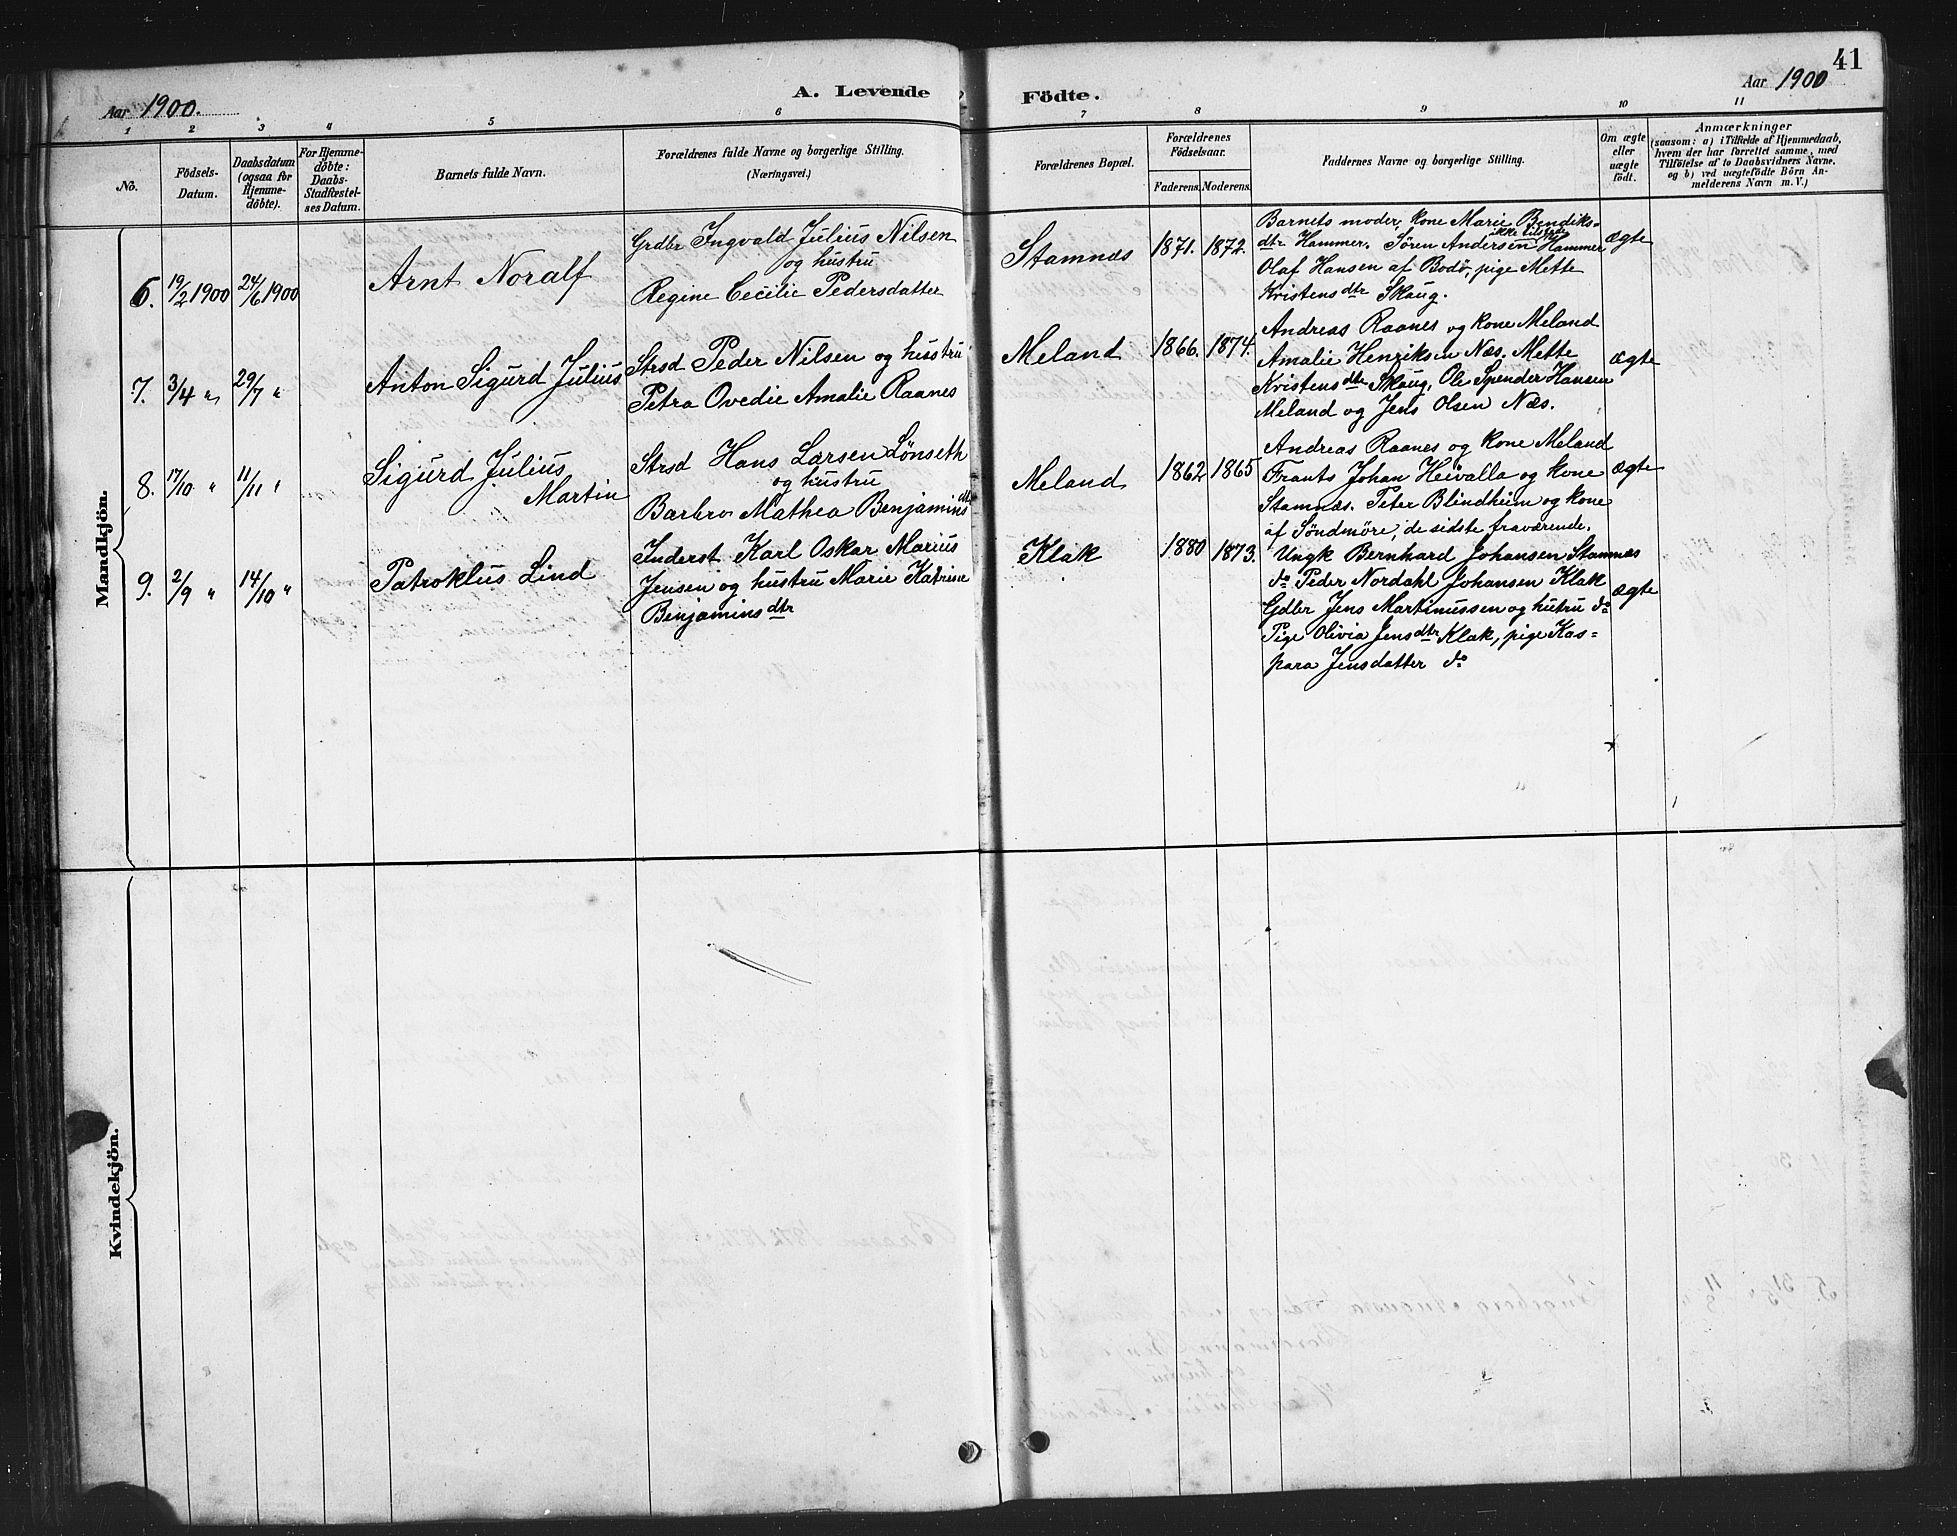 41
Aar 1900.
A. Levende
Födte.
Aar 1900
1 2 3 4 5 6 7 8 9 10 11
No.
Födsels-
Datum.
Daabsdatum
(ogsaa for
Hjemme-
döbte).
For Hjemme-
döbte:
Daabs-
Stadfæstel-
ses Datum.
Barnets fulde Navn.
Forældrenes fulde Navne og borgerlige Stilling.
(Næringsvei.)
Forældrenes Bopæl.
Forældrenes
Födselsaar.
Faderens. Moderens.
Faddernes Navne og borgerlige Stilling.
Om ægte
eller
uægte
födt.
Anmærkninger
(saasom: a) i Tilfælde af Hjemmedaab,
hvem der har forrettet samme, med
Tilföielse af to Daabsvidners Navne,
og b) ved uægtefödte Börn An-
melderens Navn m. V.)
Mandkjön.
6. 19/2 1900 24/6 1900
Arnt Noralf
Grdbr Ingvald Julius Nilsen
og hustru
Regine Cecilie Pedersdatter
Stamnæs
1871. 1872.
Barnets moder, kone Marie Bendiks-
ikke tilstede
dtr Hammer. Søren Andersen Hammer
Olaf Hansen af Bodø, pige Mette
Kristensdtr Skaug.
ægte
7. 3/4 " 29/7 "
Anton Sigurd Julius
Strsd Peder Nilsen og hustru
Petra Ovedie Amalie Raanes
Meland
1866. 1874.
Andreas Raanes og kone Meland
Amalie Henriksen Næs. Mette
Kristensdtr Skaug, Ole Spender Hansen
Meland og Jens Olsen Næs.
ægte
8. 17/10 " 11/11 "
Sigurd Julius
Martin
Strsd Hans Larsen Lønseth
og hustru
Barbro Mathea Benjaminsdtr
Meland
1862 1865
Andreas Raanes og kone Meland
Frants Johan Heivalla og kone
Stamnæs. Peter Blindheim og kone
af Søndmøre, de sidste fraværende.
ægte
9. 2/9 " 14/10 "
Patroklus Lind
Inderst Karl Oskar Marius
Jensen og hustru Marie Katrine
Benjaminsdtr
Klak
1880 1873.
Ungk Bernhard Johansen Stamnæs
do Peder Nordahl Johansen Klak
Gdbr Jens Martinussen og hutru do
Pige Olivia Jensdtr Klak, pige Kas=
para Jensdatter do
ægte
Kvindekjön.